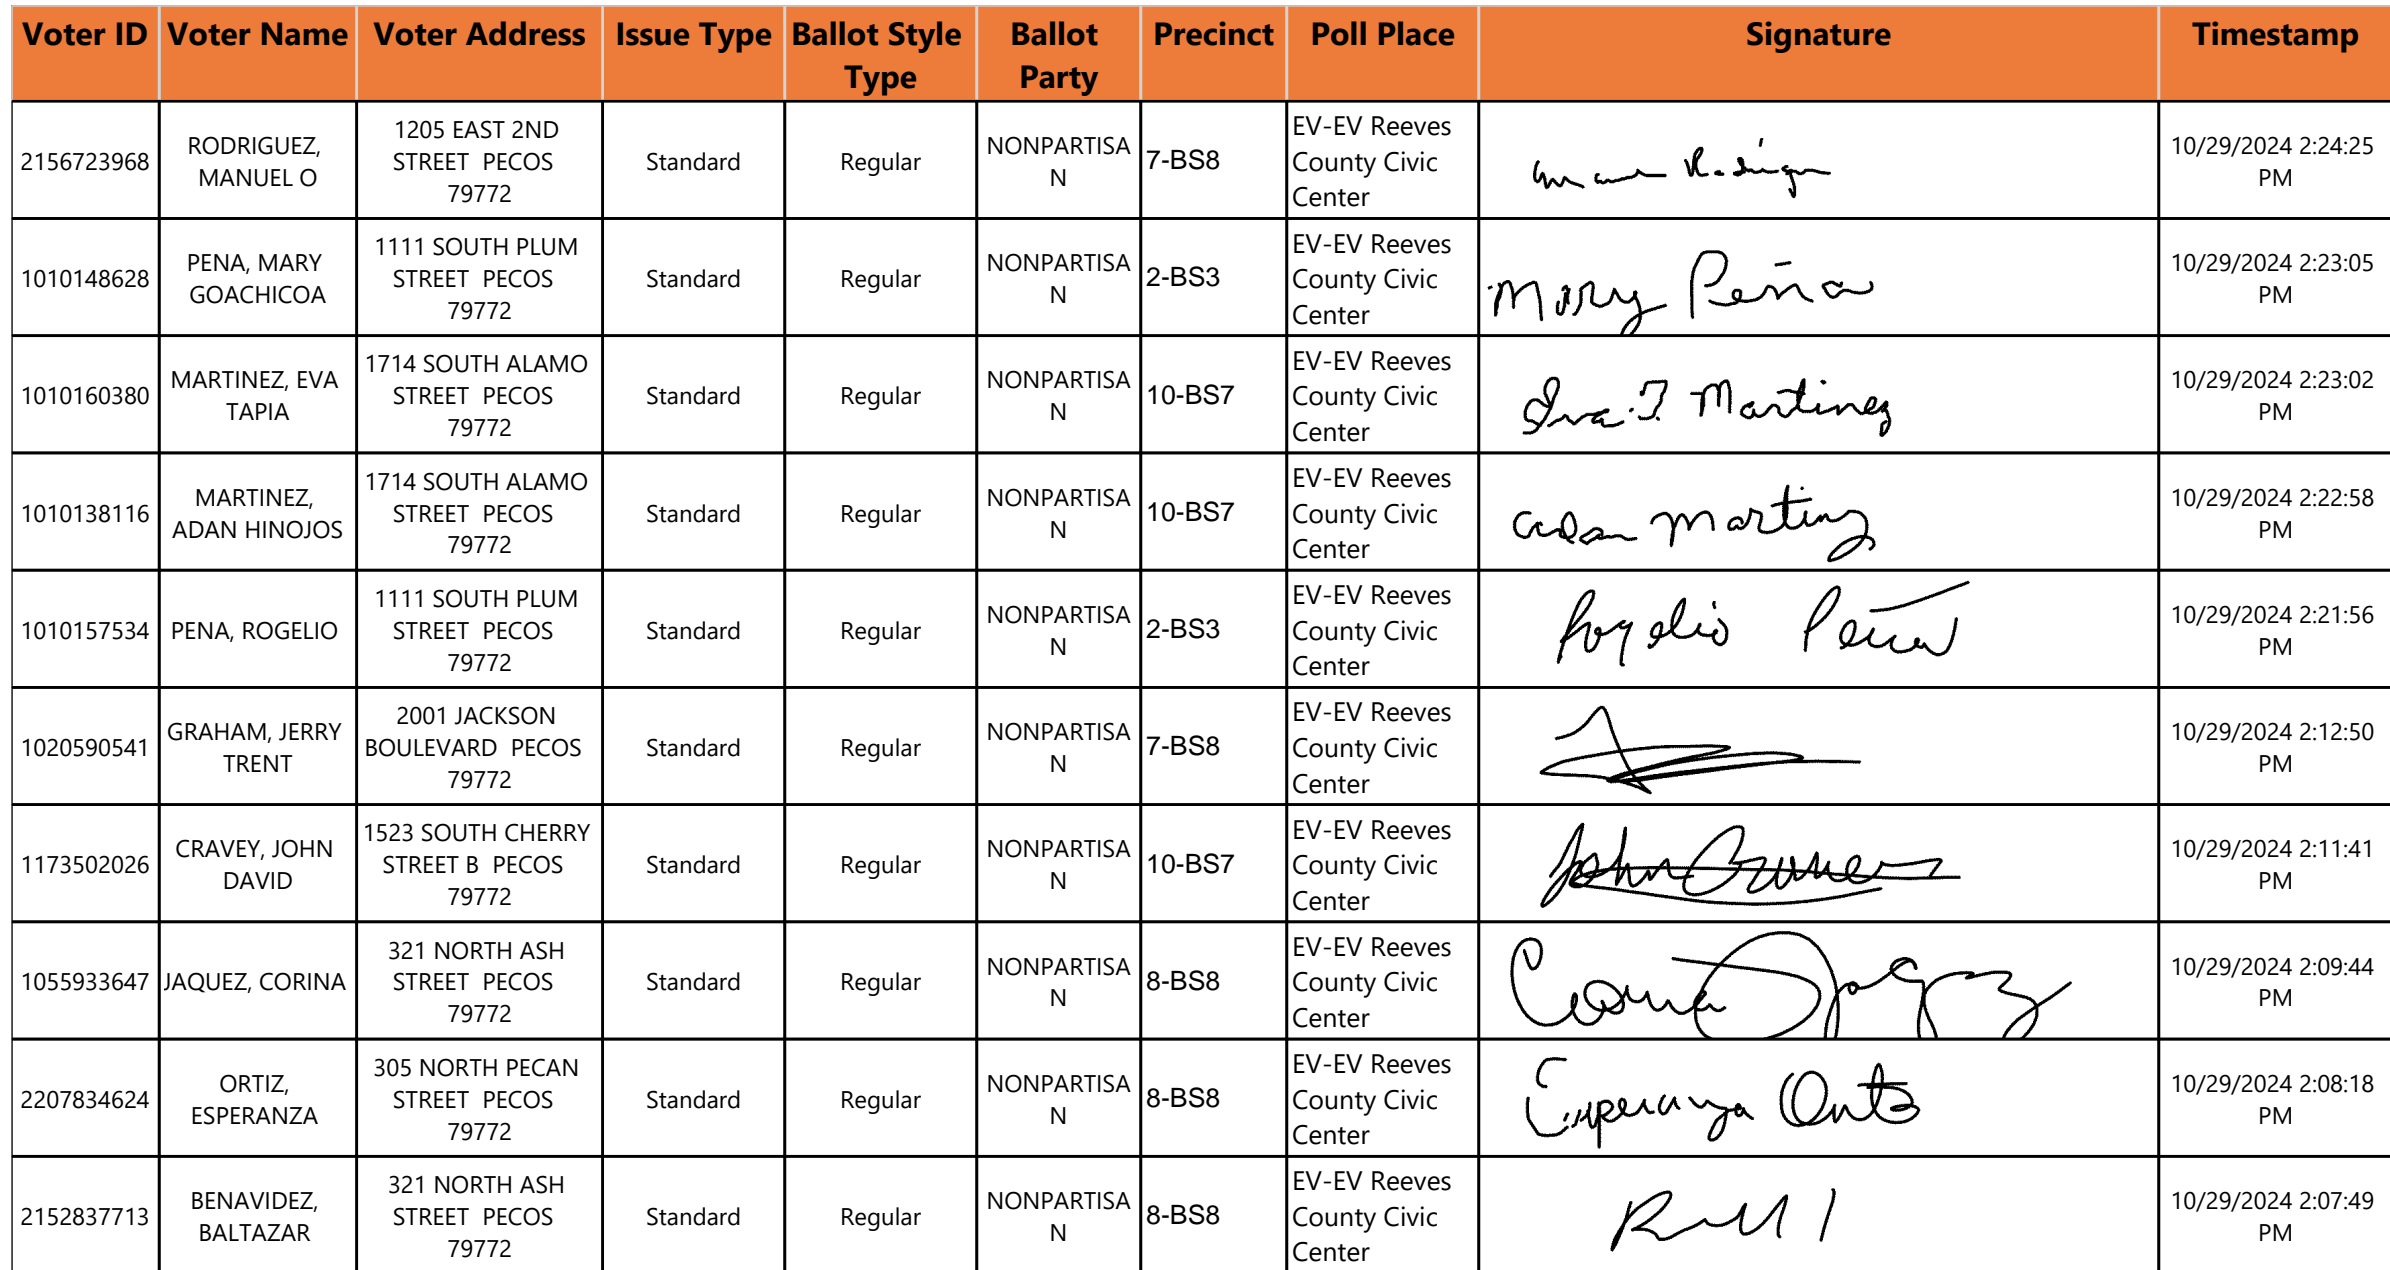 Voter ID Voter Name Voter Address Issue Type Ballot Style Type Ballot Party Precinct Poll Place Signature Timestamp
2156723968 RODRIGUEZ, MANUEL O 1205 EAST 2ND STREET PECOS 79772 Standard Regular NONPARTISAN 7-BS8 EV-EV Reeves County Civic Center 10/29/2024 2:24:25 PM
1010148628 PENA, MARY GOACHICOA 1111 SOUTH PLUM STREET PECOS 79772 Standard Regular NONPARTISAN 2-BS3 EV-EV Reeves County Civic Center Mary Peña 10/29/2024 2:23:05 PM
1010160380 MARTINEZ, EVA TAPIA 1714 SOUTH ALAMO STREET PECOS 79772 Standard Regular NONPARTISAN 10-BS7 EV-EV Reeves County Civic Center Eva T. Martinez 10/29/2024 2:23:02 PM
1010138116 MARTINEZ, ADAN HINOJOS 1714 SOUTH ALAMO STREET PECOS 79772 Standard Regular NONPARTISAN 10-BS7 EV-EV Reeves County Civic Center Adan Martinez 10/29/2024 2:22:58 PM
1010157534 PENA, ROGELIO 1111 SOUTH PLUM STREET PECOS 79772 Standard Regular NONPARTISAN 2-BS3 EV-EV Reeves County Civic Center Rogelio Peña 10/29/2024 2:21:56 PM
1020590541 GRAHAM, JERRY TRENT 2001 JACKSON BOULEVARD PECOS 79772 Standard Regular NONPARTISAN 7-BS8 EV-EV Reeves County Civic Center 10/29/2024 2:12:50 PM
1173502026 CRAVEY, JOHN DAVID 1523 SOUTH CHERRY STREET B PECOS 79772 Standard Regular NONPARTISAN 10-BS7 EV-EV Reeves County Civic Center John 10/29/2024 2:11:41 PM
1055933647 JAQUEZ, CORINA 321 NORTH ASH STREET PECOS 79772 Standard Regular NONPARTISAN 8-BS8 EV-EV Reeves County Civic Center 10/29/2024 2:09:44 PM
2207834624 ORTIZ, ESPERANZA 305 NORTH PECAN STREET PECOS 79772 Standard Regular NONPARTISAN 8-BS8 EV-EV Reeves County Civic Center Esperanza Ortiz 10/29/2024 2:08:18 PM
2152837713 BENAVIDEZ, BALTAZAR 321 NORTH ASH STREET PECOS 79772 Standard Regular NONPARTISAN 8-BS8 EV-EV Reeves County Civic Center 10/29/2024 2:07:49 PM